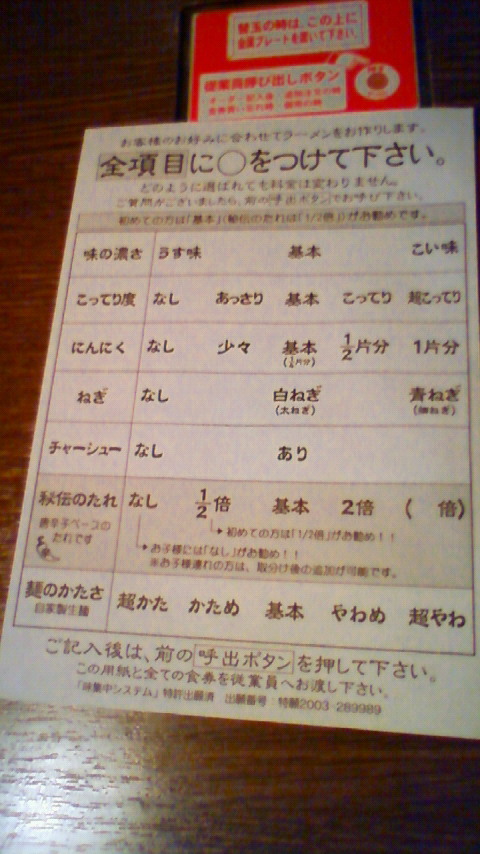 替玉の時は、この上に
金属プレートを置いて下さい。
従業員呼び出しボタン
お客様のお好みに合わせてラーメンをお作りします。
全項目に○をつけて下さい。
どのように選ばれても料金は変わりません。
ご質問がございましたら、前の呼出ボタンでお呼び下さい。
初めての方は「基本」(秘伝のたれは「1/2倍」)がお勧めです。
味の濃さ うす味 基本 こい味
こってり度 なし あっさり 基本 こってり 超こってり
にんにく なし 少々 基本 1/2片分 1片分
ねぎ なし 白ねぎ 青ねぎ
(太ねぎ) (細ねぎ)
チャーシュー なし あり
秘伝のたれ なし 1/2倍 基本 2倍 ( 倍)
唐辛子ベースの
たれです
初めての方は「1/2倍」がお勧め！！
お子様には「なし」がお勧め！！
※お子様連れの方は、取分け後の追加が可能です。
麺のかたさ 超かた かため 基本 やわめ 超やわ
自家製生麺
ご記入後は、前の呼出ボタンを押して下さい。
この用紙と全ての食券を従業員へお渡し下さい。
「味集中システム」特許出願済 出願番号：特願2003-289989